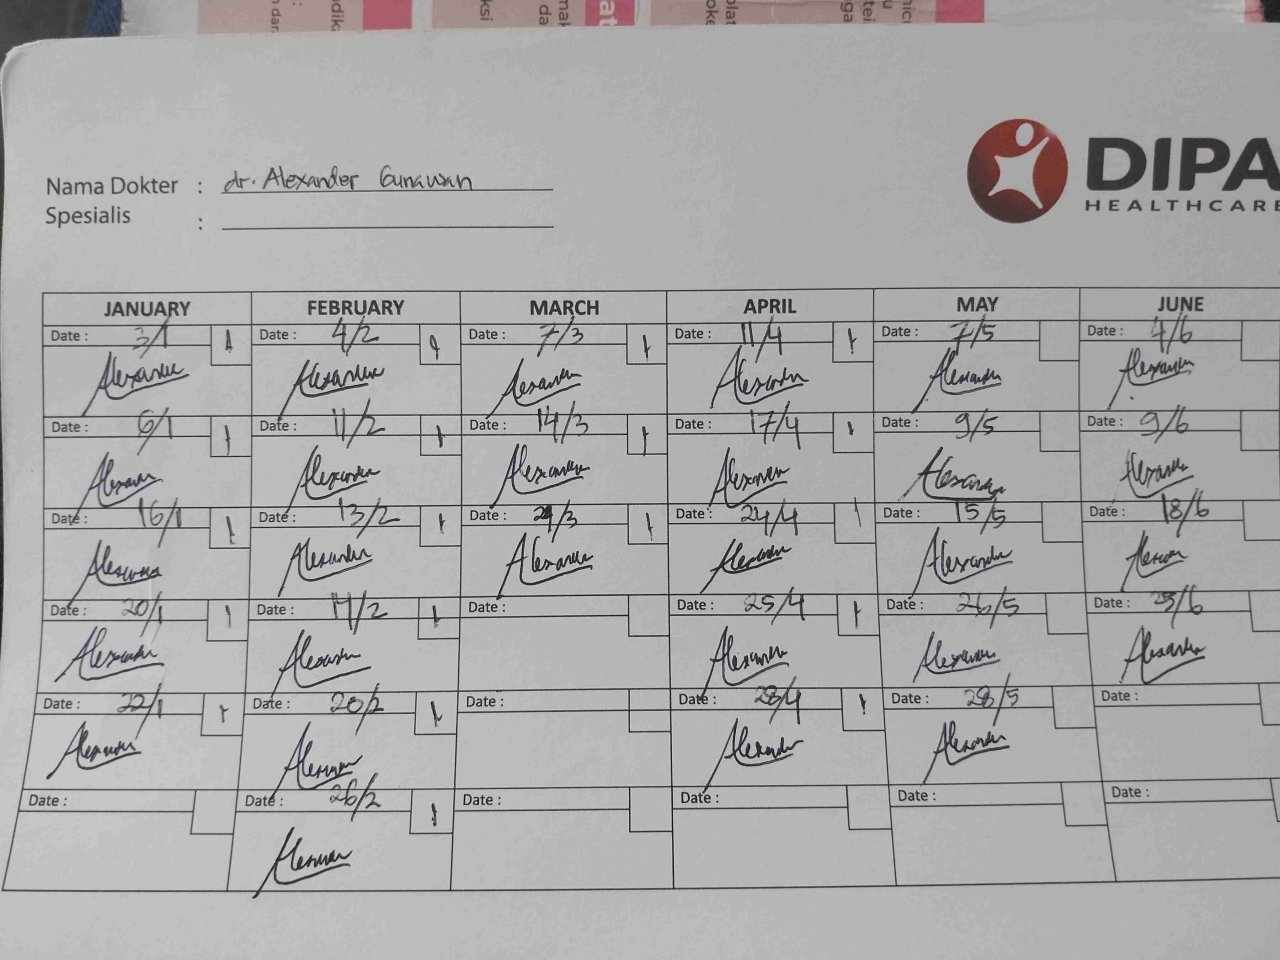 Nama Dokter : dr. Alexander Gunawan
Spesialis :
DIPA
HEALTHCARE
JANUARY FEBRUARY MARCH APRIL MAY JUNE
Date : 3/1 Date : 4/2 Date : 7/3 Date : 11/4 Date : 7/5 Date : 4/6
Alexander Alexander Alexander Alexander Alexander Alexander
Date : 6/1 Date : 11/2 Date : 14/3 Date : 17/4 Date : 9/5 Date : 9/6
Alexander Alexander Alexander Alexander Alexander Alexander
Date : 16/1 Date : 13/2 Date : 21/3 Date : 24/4 Date : 15/5 Date : 18/6
Alexander Alexander Alexander Alexander Alexander Alexander
Date : 20/1 Date : 17/2 Date : Date : 25/4 Date : 26/5 Date : 25/6
Alexander Alexander Alexander Alexander Alexander
Date : 22/1 Date : 20/2 Date : Date : 28/4 Date : 28/5 Date :
Alexander Alexander Alexander Alexander
Date : Date : 26/2 Date : Date : Date : Date :
Alexander